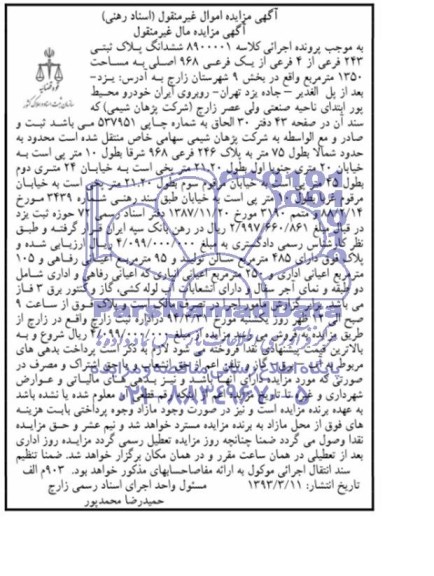 آگهی مزایده اموال غیرمنقول (اسناد رهنی)
آگهی مزایده مال غیرمنقول
به موجب پرونده اجرائی کلاسه ۸۹۰۰۰۰۱ ششدانگ پلاک ثبتی
۲۴۳ فرعی از ۴ فرعی از یک فرعی ۹۶۸ اصلی به مساحت
۱۳۵۰ مترمربع واقع در بخش ۹ شهرستان زارچ به آدرس: یزد-
بعد از پل الغدیر - جاده یزد تهران- روبروی ایران خودرو محیط
پور ابتدای ناحیه صنعتی ولی عصر زارچ (شرکت پژهان شیمی) که
سند آن در صفحه ۴۳ دفتر ۳۰ الحاق به شماره چاپی ۵۳۷۹۵۱ ثبت و
صادر و مع الواسطه به شرکت پژهان شیمی سهامی خاص منتقل شده است محدود به
حدود شمالا بطول ۷۵ متر به پلاک ۲۴۶ فرعی ۹۶۸ شرقا بطول ۱۰ متر پی است به
خیابان ۲۰ متری جنوبا اول بطول ۲۱.۲۰ متر پخی است به خیابان ۲۴ متری دوم
بطول ۴۵ متر پی است به خیابان مرقوم سوم بطول ۲۱.۴۰ متر است به خیابان
مرقوم غربا بطول متر پی است به خیابان طبق سند رهنی شماره ۳۴۳۹ مورخ
متمم مورخ ۱۳۸۷/۱۱/۲۰ دفتر اسناد رسمی ۷۲ حوزه ثبت یزد
در قبال مبلغ ۲/۹۹۷/۶۶۰/۸۶۱ ریال در رهن بانک سپه ایران قرار گرفته و طبق
نظر کارشناس رسمی دادگستری به مبلغ ۴/۰۹۹/۰۰۰/۰۰۰ ریال ارزیابی شده و
پلاک فوق دارای ۴۸۵ مترمربع سالن تولید و ۹۵ مترمربع اعیانی رفاهی و ۱۰۵
مترمربع اعیانی اداری و ۲۵۰ مترمربع اعیانی انباری که اعیانی رفاهی و اداری شامل
دو طبقه و نمای آجر سفال و دارای انشعابات آب لوله کشی، گاز و کنتور برق ۳ فاز
می باشد مالک است و پلاک فوق از ساعت ۹
صبح الی ۱۲ ظهر روز یکشنبه مورخ اداره ثبت زارچ واقع در زارچ از
طریق مزایده به فروش می رسد مزایده از مبلغ ۴/۰۹۹/۰۰۰/۰۰۰ ریال شروع و به
بالاترین قیمت پیشنهادی نقدا فروخته می شود لازم به ذکر است پرداخت بدهی های
مربوط به آب، برق، گاز و تلفن اعم از حق انشعاب و یا حق اشتراک و مصرف در
صورتی که مورد مزایده دارای آنها باشد و نیز بدهی های مالیاتی و عوارض
شهرداری و غیره تا تاریخ مزایده اعم از اینکه رقم قطعی آن معلوم شده یا نشده باشد
به عهده برنده مزایده است و نیز در صورت وجود مازاد وجوه پرداختی بابت هزینه
های فوق از محل مازاد به برنده مزایده مسترد خواهد شد و نیم عشر و حق مزایده
نقدا وصول می گردد ضمنا چنانچه روز مزایده تعطیل رسمی گردد مزایده روز اداری
بعد از تعطیلی در همان ساعت مقرر و در همان مکان برگزار خواهد شد. ضمنا تنظیم
سند انتقال اجرائی موکول به ارائه مفاصاحسابهای مذکور خواهد بود. ۹۰۳م الف
تاریخ انتشار: ۱۳۹۳/۳/۱۱ مسئول واحد اجرای اسناد رسمی زارچ
حمیدرضا محمدپور
ParsNamadData
۰۲۱-۸۸۳۴۹۶۷۰-۵